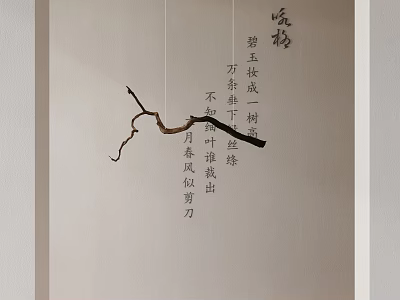 咏柳
碧玉妆成一树高
万条垂下绿丝绦
不知细叶谁裁出
月春风似剪刀